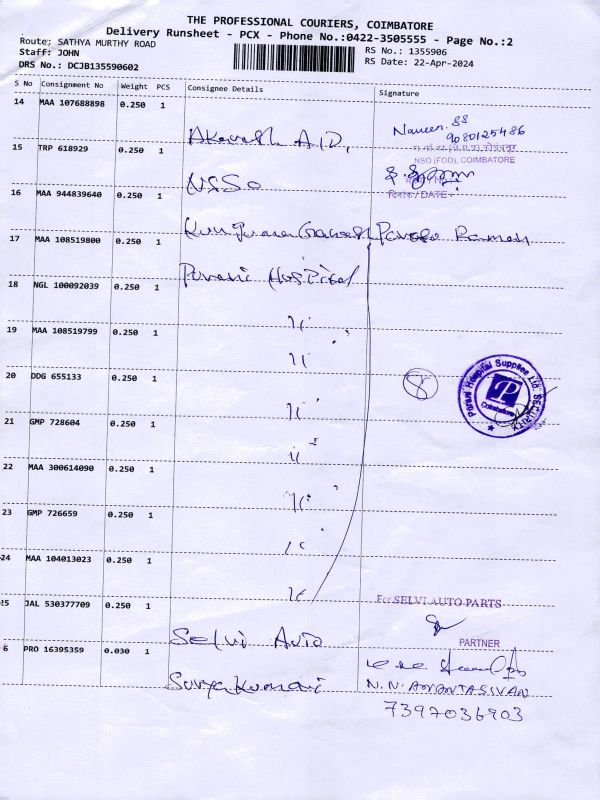 THE PROFESSIONAL COURIERS, COIMBATORE
Delivery Runsheet - PCX - Phone No.:0422-3505555 - Page No.:2
Route: SATHYA MURTHY ROAD
Staff: JOHN
DRS No.: DCJB135590602
RS No.: 1355906
RS Date: 22-Apr-2024
S No Consignment No Weight PCS Consignee Details Signature
14 MAA 107688898 0.250 1
Naveen. 88
9080125486
Akarash A.I.D,
15 TRP 618929 0.250 1
NSO (FOD), COIMBATORE
NSSO
दिनांक / DATE
16 MAA 944839640 0.250 1
17 MAA 108519800 0.250 1
Purani Hospital
18 NGL 100092039 0.250 1
19 MAA 108519799 0.250 1
20 DDG 655133 0.250 1
8
Hospital Supplies Ltd. SECURITY
P
Coimbatore
21 GMP 728604 0.250 1
22 MAA 300614090 0.250 1
23 GMP 726659 0.250 1
24 MAA 104013023 0.250 1
25 JAL 530377709 0.250 1
For SELVI AUTO PARTS
PARTNER
Selvi Auto
6 PRO 16395359 0.030 1
Surya Kumari
N.N. ANANTASIVAN
7397036903